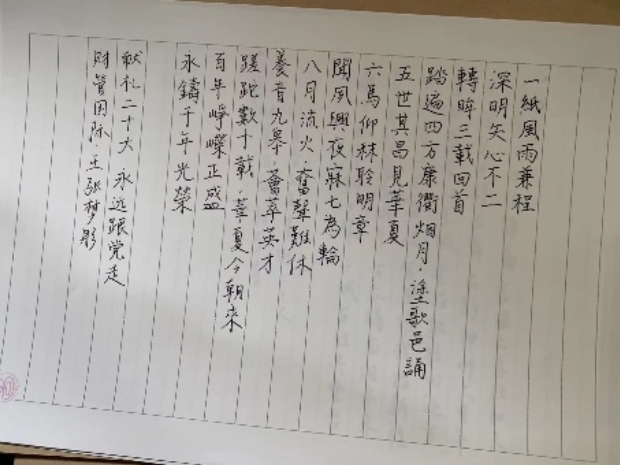 一紙風雨兼程
深明矢心不二
轉眸三載回首
踏遍四方康衢烟月，塗歌邑誦
五世其昌見華夏
六馬仰秣聆明章
聞夙興夜寐七為輪
八月流火，奮聲難休
養音九皋，薈萃英才
蹉跎數十載，華夏今朝來
百年崢嶸正盛
永鑄千年光榮
献礼二十大 永远跟党走
财管国际 王张梦彤